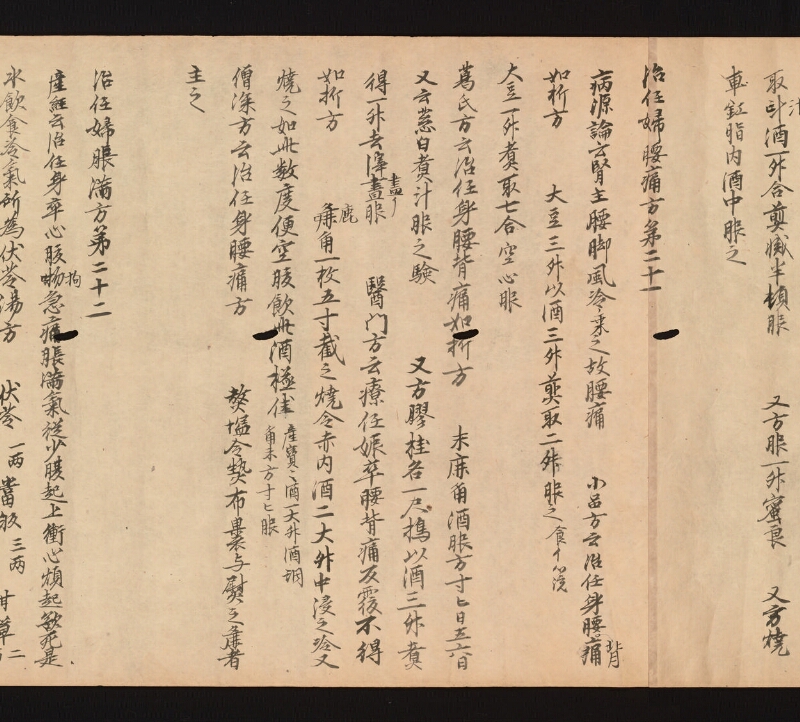 取汁酒一升合煎减半頓服　又方服一升蜜良　又方燒
車釭脂内酒中服之
治任婦腰痛方第二十一
病源論云腎主腰脚風冷乘之故腰痛　小品方云治任身腰背痛
如折方　大豆三升以酒三升煎取二升服之
大豆一升煮取七合空心服
葛氏方云治任身腰背痛如折方　末鹿角酒服方寸匕日五六
又云葱白煮汁服之驗　又方膠桂各一尺搗以酒三升煮
得一升去滓盡服　醫門方云療任娠卒腰背痛反覆不得
如折方　鹿角一枚五寸截之燒令赤内酒二大升中浸之冷又
燒之如此數度便空腹飲此酒極佳　產寶云酒一大升酒調角末方寸匕服
僧深方云治任身腰痛方　熬塩令熱布裹与熨之
主之
治任婦脹滿方第二十二
產經云治任身卒心腹拘急痛脹滿氣從少腹起上衝心煩起欲死是
水飲食冷氣所為伏苓湯方　伏苓一兩　當歸三兩　甘草二